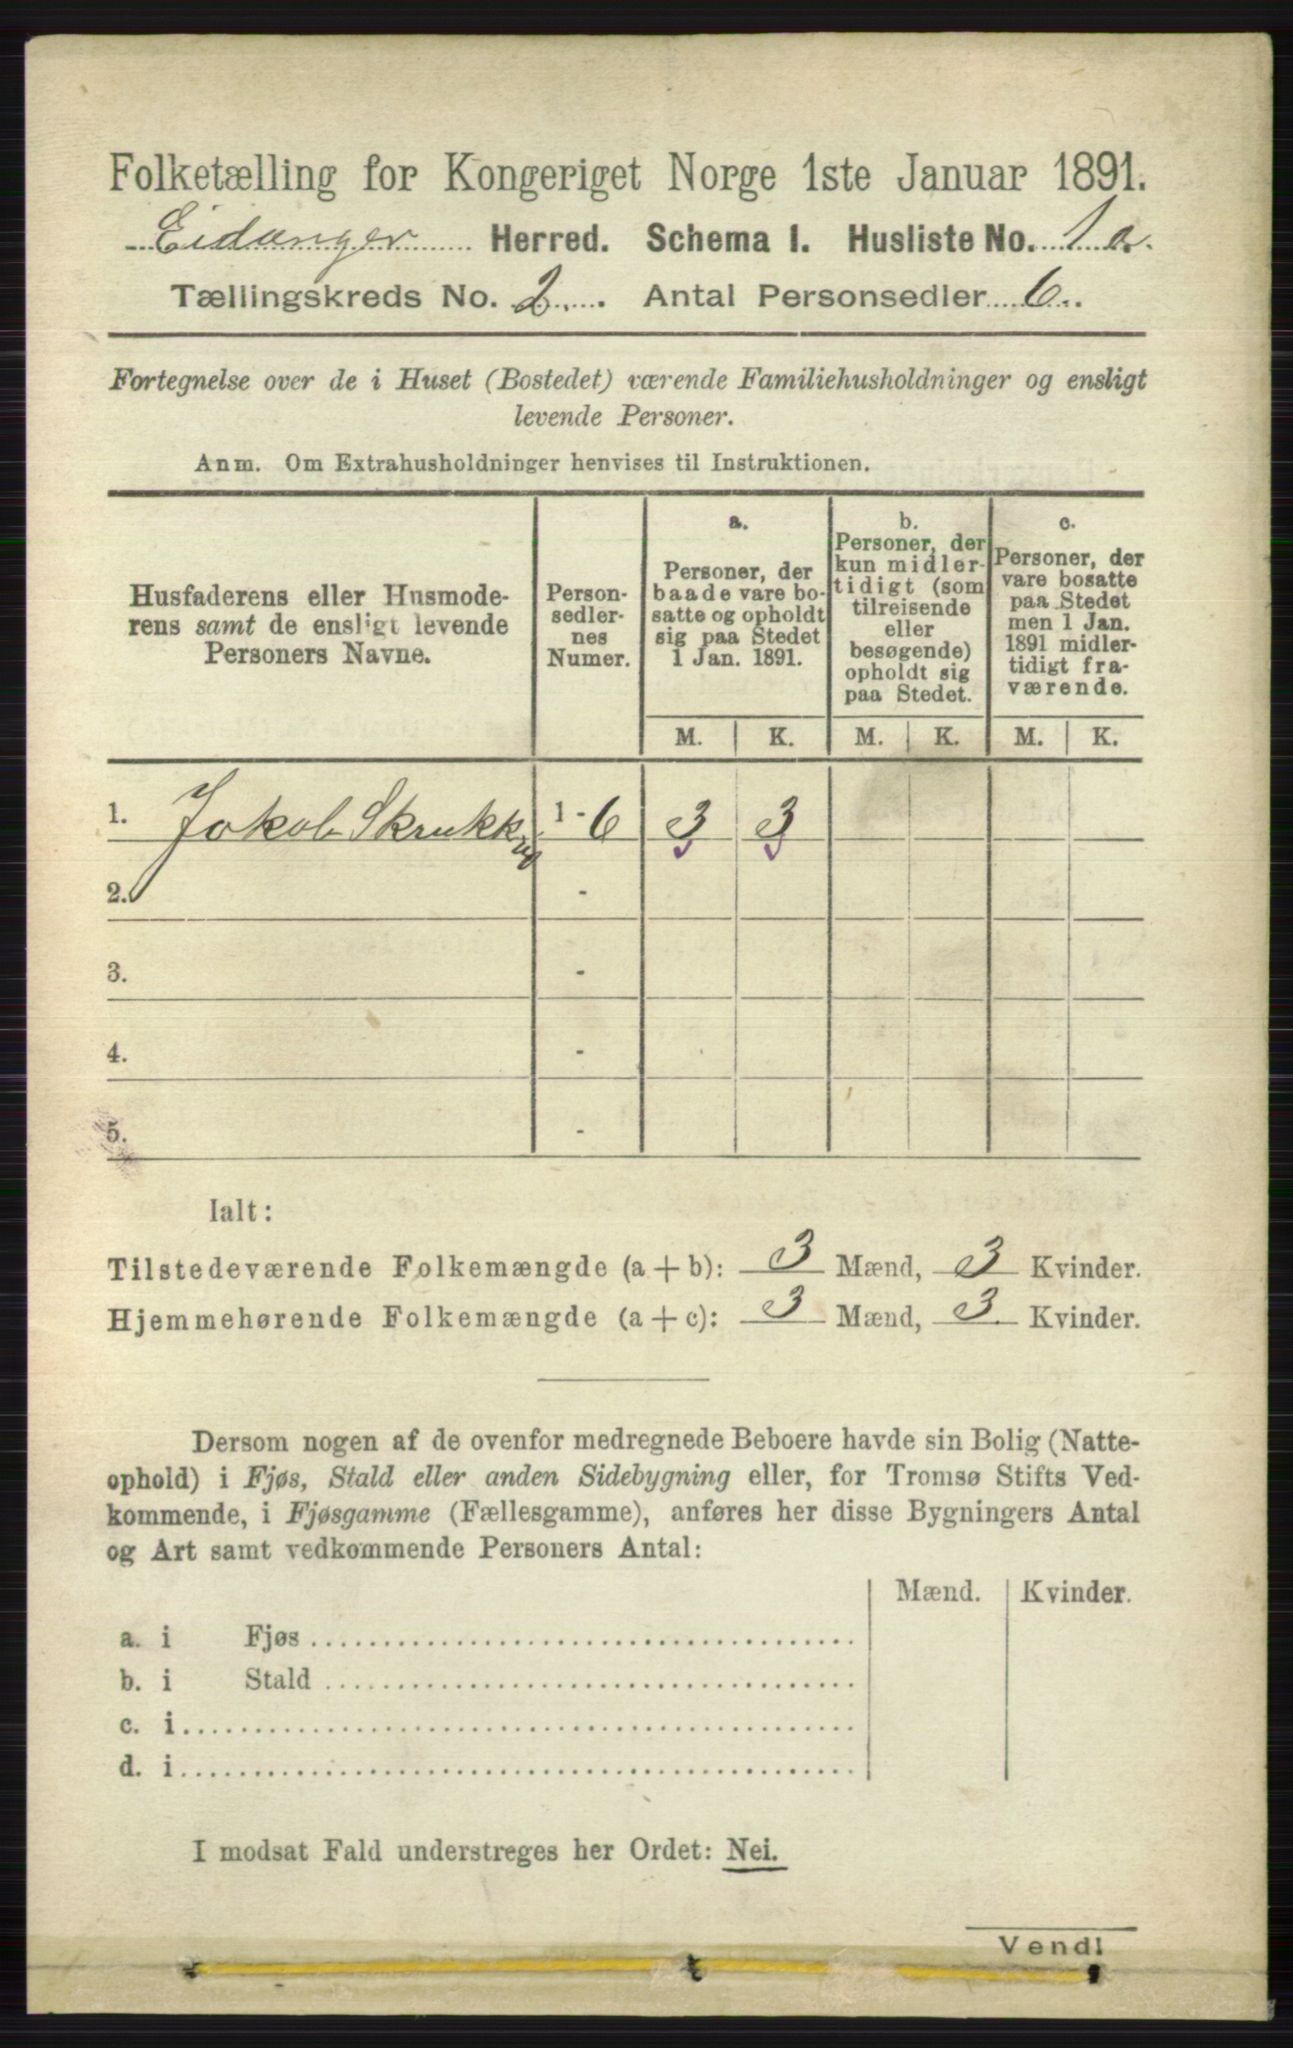 Folketælling for Kongeriget Norge 1ste Januar 1891.
Eidanger Herred. Schema 1. Husliste No. 1a.
Tællingskreds No. 2. Antal Personsedler 6.
Fortegnelse over de i Huset (Bostedet) værende Familiehusholdninger og ensligt
levende Personer.
Anm. Om Extrahusholdninger henvises til Instruktionen.
Husfaderens eller Husmode-
rens samt de ensligt levende
Personers Navne.
Person-
sedler-
nes
Numer.
a.
Personer, der
baade vare bo-
satte og opholdt
sig paa Stedet
1 Jan. 1891.
b.
Personer, der
kun midler-
tidigt (som
tilreisende
eller
besøgende)
opholdt sig
paa Stedet.
c.
Personer, der
vare bosatte
paa Stedet
men 1 Jan.
1891 midler-
tidigt fra-
værende.
M. K. M. K. M. K.
1. Jokob Skrukk 1 - 6 3 3
2. -
3. -
4. -
5. -
Ialt:
Tilstedeværende Folkemængde (a + b): 3 Mænd, 3 Kvinder.
Hjemmehørende Folkemængde (a + c): 3 Mænd, 3 Kvinder.
Dersom nogen af de ovenfor medregnede Beboere havde sin Bolig (Natte-
ophold) i Fjøs, Stald eller anden Sidebygning eller, for Tromsø Stifts Ved-
kommende, i Fjøsgamme (Fællesgamme), anføres her disse Bygningers Antal
og Art samt vedkommende Personers Antal:
Mænd. Kvinder.
a. i Fjøs
b. i Stald
c. i
d. i
I modsat Fald understreges her Ordet: Nei.
Vend!